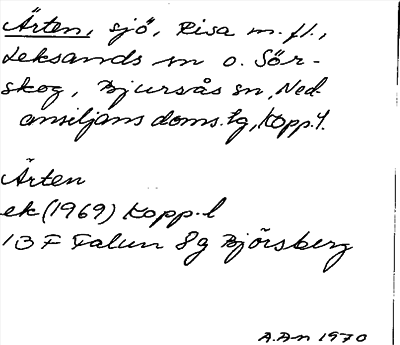 Ärten, sjö, Risa m. fl.,
Leksands sn o. Sör-
skog, Bjursås sn, Ned.
ansiljans doms. tg, Kopp. l.
Ärten
ek (1969) Kopp. l
13 F Falun 8g Björsberg
A.An 1970